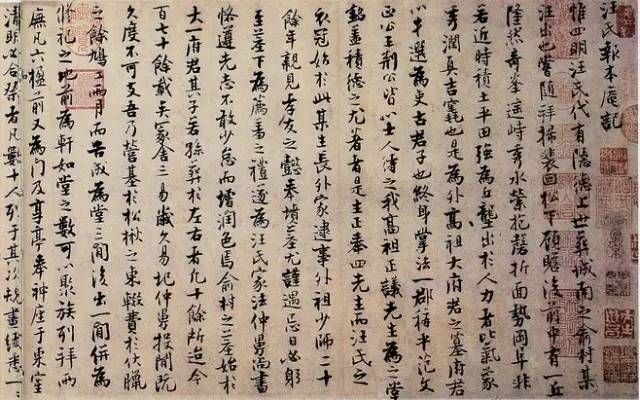 汪氏報本庵記
惟四明汪氏代有隱德上世葬城南之俞村某
汪出也嘗隨拜掃裴回松下顧瞻後前中有一丘
隆然奇峯遠峙秀水縈抱磬折面勢岡阜非
若近時積土平田強為丘壟出於人力者比氣象
秀潤真吉竁也是為外高祖大府君之墓府君
以半選為吏古君子也終身掌法一郡稱平范文
正公王荆公皆以士人待之我高祖正議先生為之堂
銘盡積德之尤著者是生正奉四先生而汪氏之
衣冠始於此某生長外家逮事外祖少師二十
餘年親見孝友之懿奉墳墓尤謹遇忌日必躬
至墓下為薦羞之禮遂為汪氏家法仲舅尚書
恪遵先志不敢少怠而增潤色焉俞村之墓始於
大一府君其子若孫葬於左右者凡十餘所迨今
百七十餘載矣冢舍三易歲久易圮仲舅投閒既
久度不可支吾乃營基於松楸之東輟費於伏臘
之餘鳩工兩月而告成為堂三間後出一間併為
脩祀之地前為軒如堂之數可以聚族列拜兩
廡凡六楹前又為門及享亭奉神座于東室
清明必合祭者凡數十人列于其次規畫纖悉一一